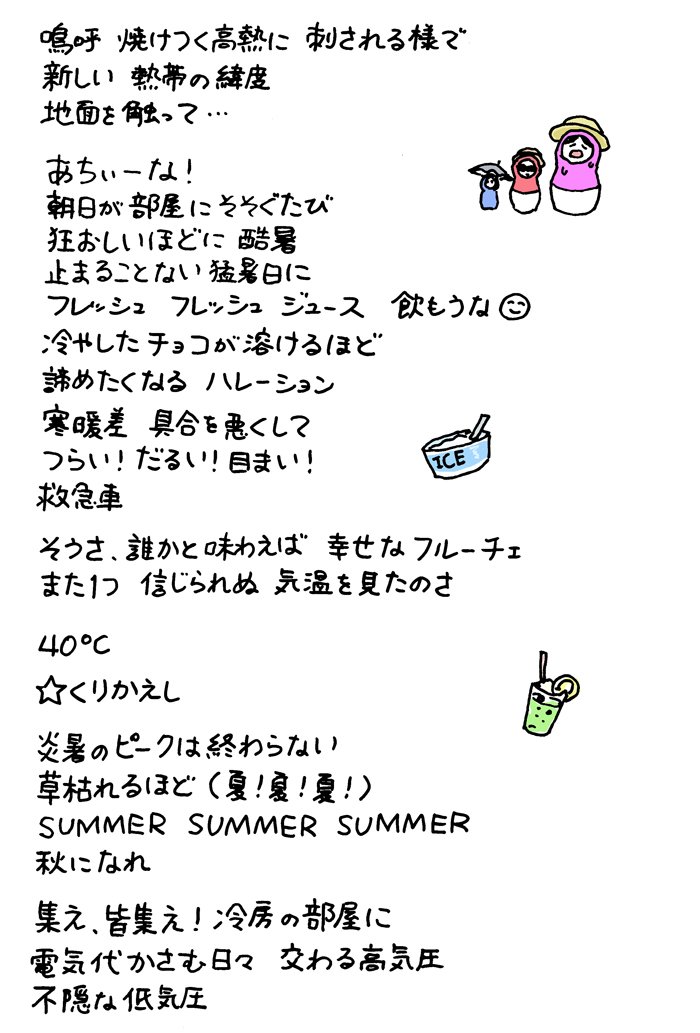 嗚呼 焼けつく高熱に 刺される様で
新しい 熱帯の緯度
地面を触って…
あちぃーな！
朝日が部屋にそそぐたび
狂おしいほどに 酷暑
止まることない猛暑日に
フレッシュ フレッシュ ジュース 飲もうな☺
冷やしたチョコが溶けるほど
諦めたくなる ハレーション
寒暖差 具合を悪くして
つらい！だるい！目まい！
ICE
救急車
そうさ、誰かと味わえば 幸せなフルーチェ
また1つ 信じられぬ 気温を見たのさ
40℃
☆くりかえし
炎暑のピークは終わらない
草枯れるほど（夏！夏！夏！）
SUMMER SUMMER SUMMER
秋になれ
集え、皆集え！冷房の部屋に
電気代かさむ日々 交わる高気圧
不隠な低気圧